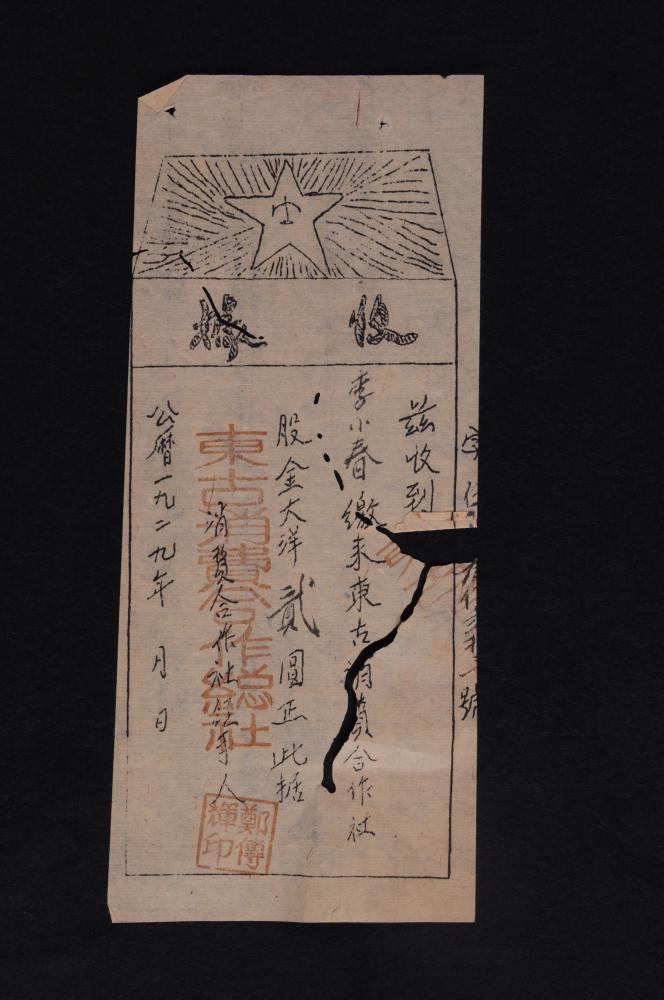 收據
字
號
茲收到
李小春繳來東古消費合作社
股金大洋貳圓正此据
消費合作社經手人
公曆一九二九年 月 日
東古消費合作總社
鄭傳輝印